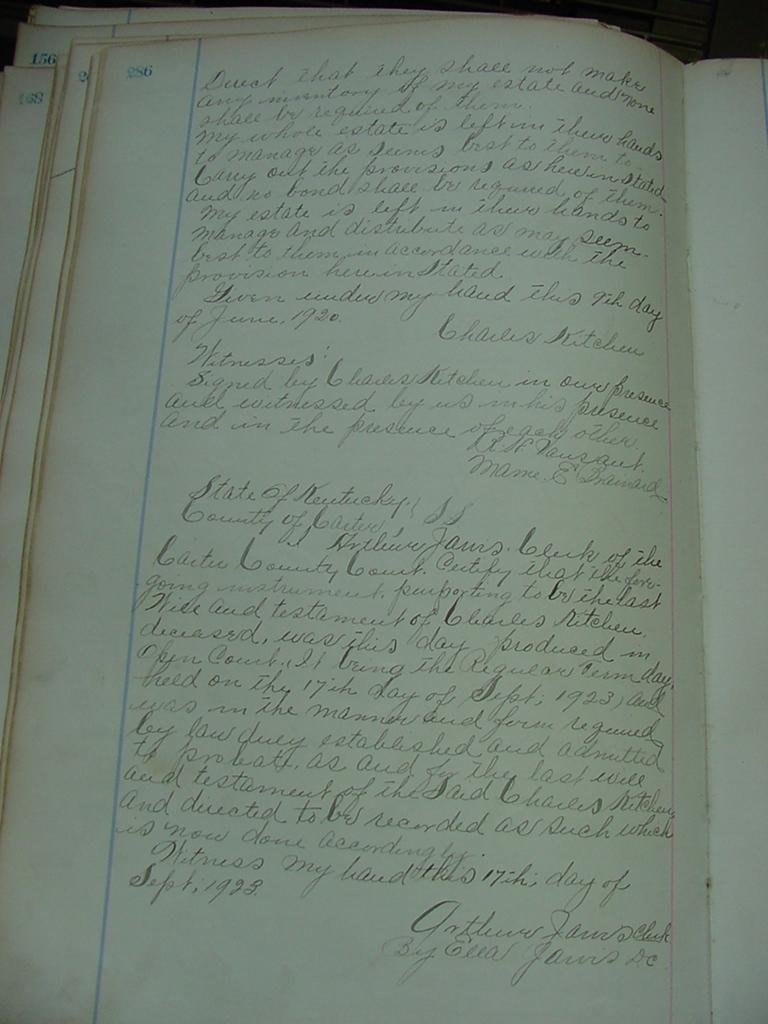 156
168
2
286
Direct that they shall not make
any inventory of my estate and none
shall be required of them.
My whole estate is left in their hands
to manage as seems best to them to
Carry out the provisions as herein Stated
and no bond shall be required of them.
My estate is left in their hands to
manage and distribute as may seem
best to them in accordance with the
provision herein Stated.
Given under my hand this 9th day
of June, 1920.
Charles Kitchen
Witnesses:
Signed by Charles Kitchen in our presence
and witnessed by us in his presence
and in the presence of each other
R. H. Vansant.
Mame. E Brainard
State of Kentucky,
County of Carter, SS
Arthur Jarvis. Clerk of the
Carter County Court. Certify that the fore-
going instrument. purporting to be the last
Will and testament of Charles Kitchen.
deceased, was this day produced in
Open Court. It being the Regular Term day,
held on the 17th day of Sept; 1923, and
was in the manner and form required
by law duly established and admitted
to probate, as and for the last will
and testament of the Said Charles Kitchen,
and directed to be recorded as such which
is now done accordingly.
Witness my hand this 17th; day of
Sept; 1923.
Arthur Jarvis Clerk
By Ella Jarvis DC